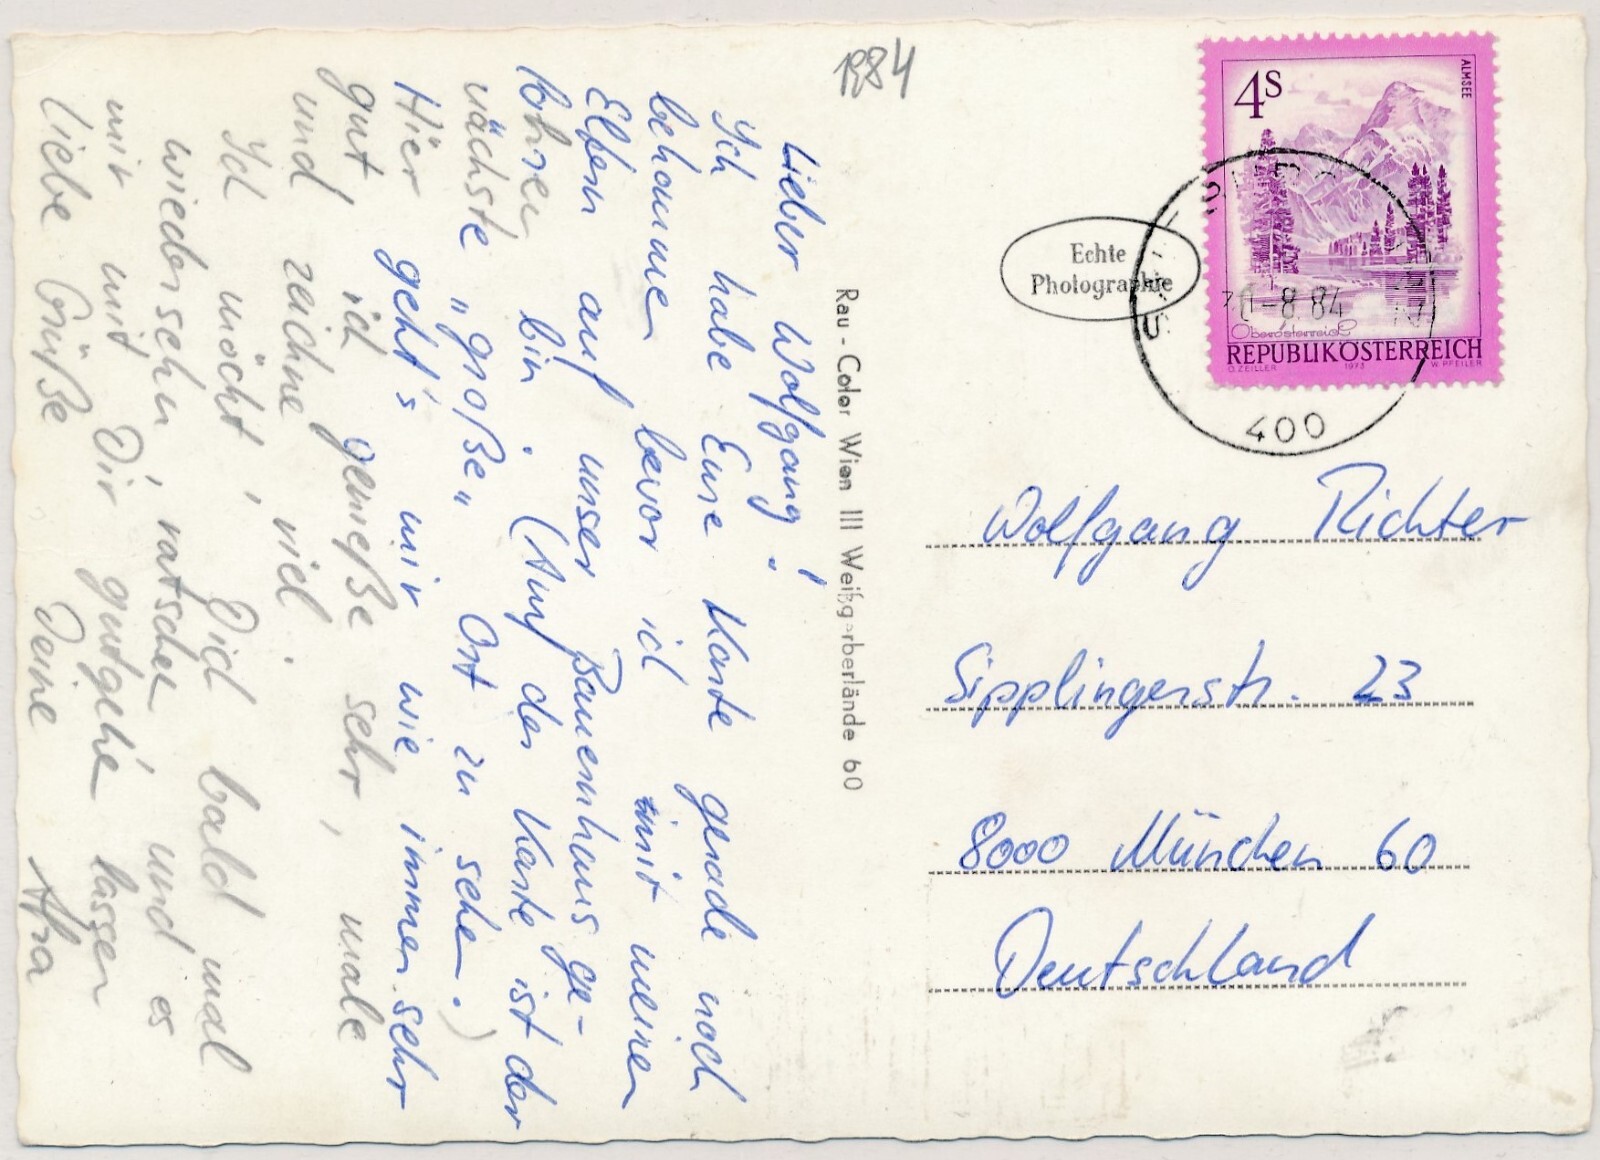 1984
Lieber Wolfgang!
Ich habe Eure Karte gerade noch
bekommen bevor ich mit meinen
Eltern auf unser Bauernhaus ge-
fahren bin. (Auf der Karte ist der
nächste „große„ Ort zu sehen.)
Hier geht's mir wie immer sehr
gut, ich genieße sehr, male
und zeichne, viel.
Ich möcht, Dich bald mal
wiedersehn, ratschen und es
mir mit Dir gutgehn lassen
liebe Grüße Deine Afra
Rau - Color Wien III Weißgerberlände 60
Echte
Photographie
4S
ALMSEE
Oberösterreich
REPUBLIK ÖSTERREICH
O. ZEILLER 1973 W. PFEILER
-8.84
400
Wolfgang Richter
Sipplingerstr. 23
8000 München 60
Deutschland